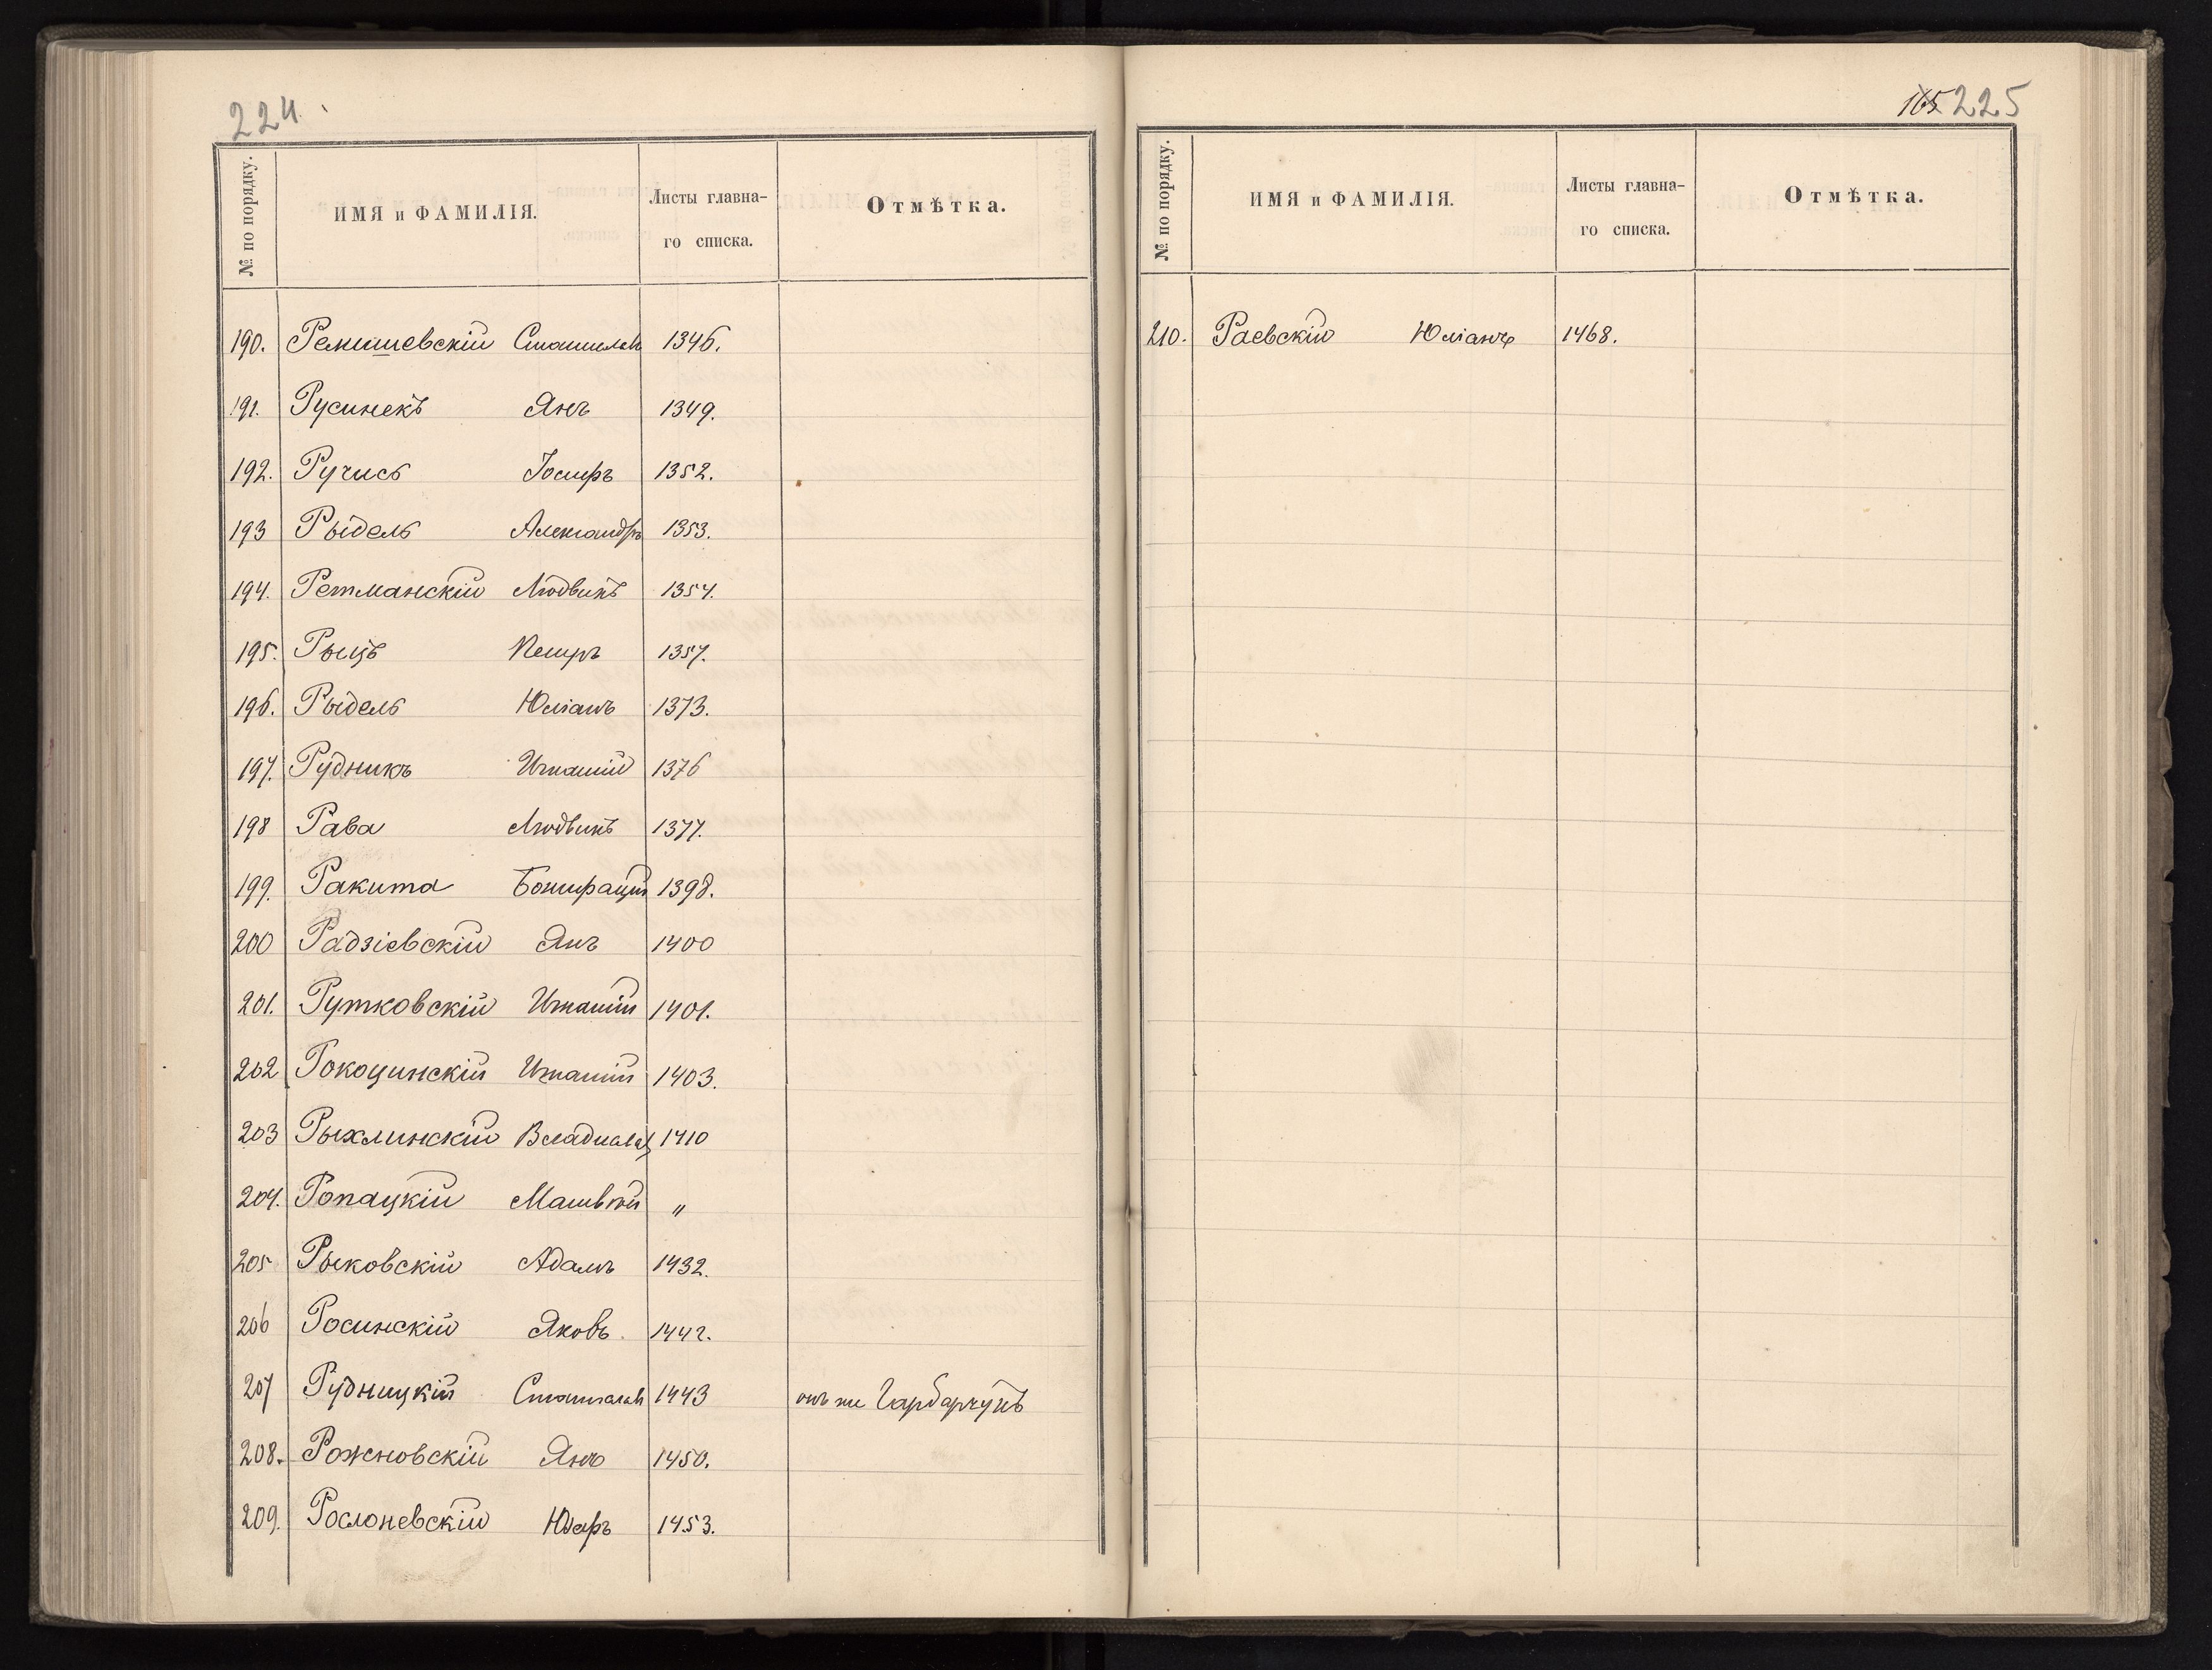 224.
№ по порядку. ИМЯ и ФАМИЛІЯ. Листы главна-го списка. Отмѣтка.
190. Ремишевскій Станислав 1346.
191. Русинекъ Янъ 1349.
192. Ручись Іосифъ 1352.
193 Рыдель Александръ 1353.
194. Ретманскій Людвикъ 1354.
195. Рыцъ Петръ 1357.
196. Рыдель Юліанъ 1373.
197. Рудникъ Игнатій 1376
198 Рава Людвикъ 1377.
199. Ракита Бонифацій 1398.
200 Радзіевскій Янъ 1400
201. Рутковскій Игнатій 1401.
202 Рокоцинскій Игнатій 1403.
203 Рыхлинскій Владислав 1410
204. Ропацкій Матвѣй "
205 Рыковскій Адамъ 1432.
206 Росинскій Яковъ. 1442.
207 Рудницкій Станислав 1443 онъ же Гарбарчукъ
208. Рожновскій Янъ 1450.
209. Послоневскій 1453.
165 225
№ по порядку. ИМЯ и ФАМИЛІЯ. Листы главна-го списка. Отмѣтка.
210. Раевскій Юліанъ 1468.